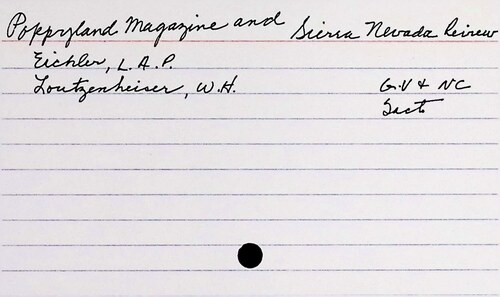 Poppyland Magazine and Sierra Nevada Reirew
Eichler, L.A.P.
Loutzenheiser, W.H. G.V & NC
Sact